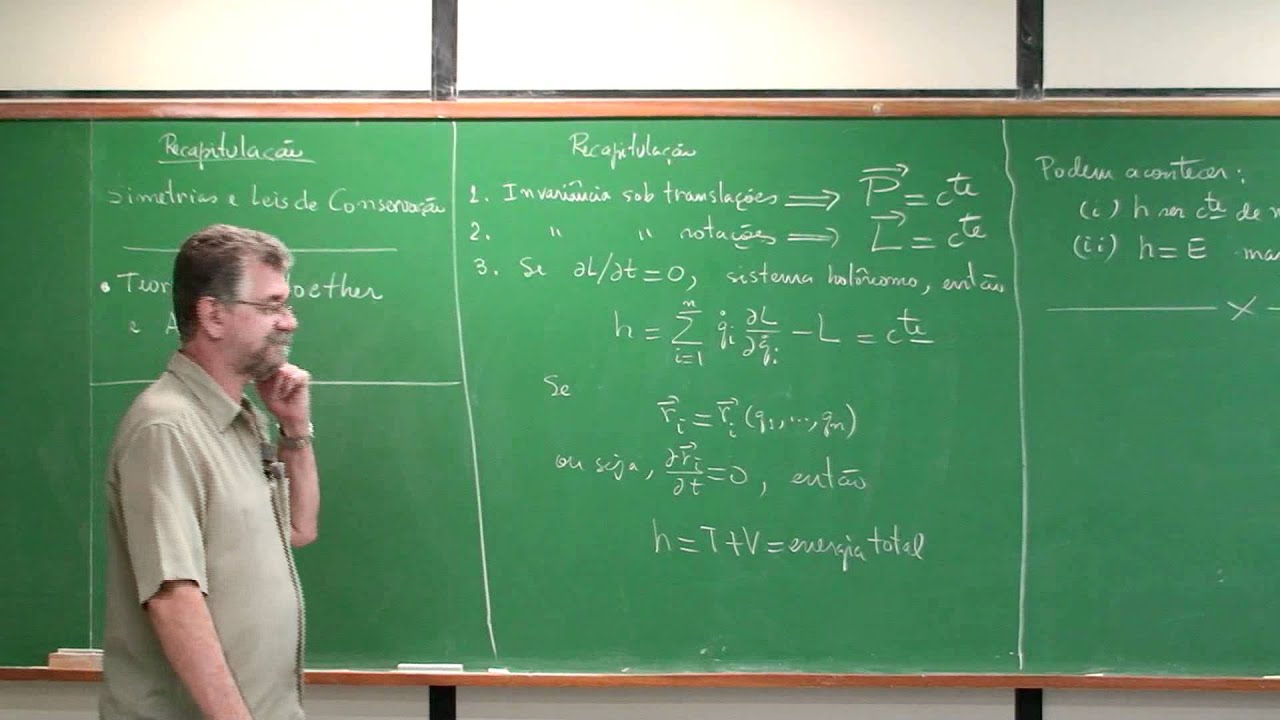 Recapitulação
Simetrias e Leis de Conservação
• Teor oether
e A
Recapitulação
1. Invariância sob translações ⟹ P⃗ = cte
2. " " rotações ⟹ L⃗ = cte
3. Se ∂L/∂t = 0, sistema holônomo, então
h = ∑_{i=1}^{n} q̇i ∂L/∂q̇i − L = cte
Se
r⃗i = r⃗i (q1, ..., qn)
ou seja, ∂r⃗i/∂t = 0, então
h = T + V = energia total
Podem acontecer:
(i) h ser cte de
(ii) h = E mas